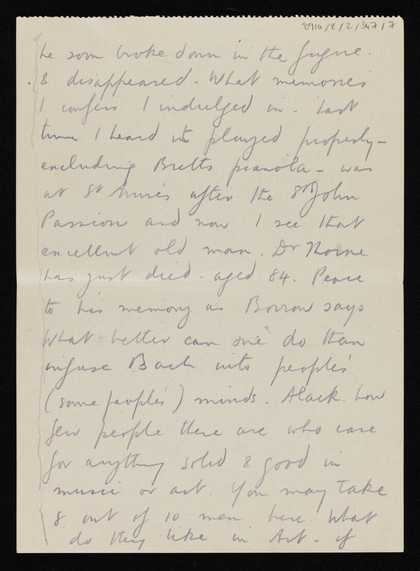 he soon broke down in the fugue.
& disappeared. What memories
I confess I indulged in. Last
time I heard it played properly -
excluding Bretts pianola - was
at St Anne's after the St John
Passion and now I see that
excellent old man. Dr Thorne
has just died - aged 84. Peace
to his memory as Borrow says
What better can one do than
infuse Bach into peoples'
(some peoples') minds. Alack. how
few people there are who care
for anything solid & good in
music or art. You may take
8 out of 10 men here What
do they like in Art - if